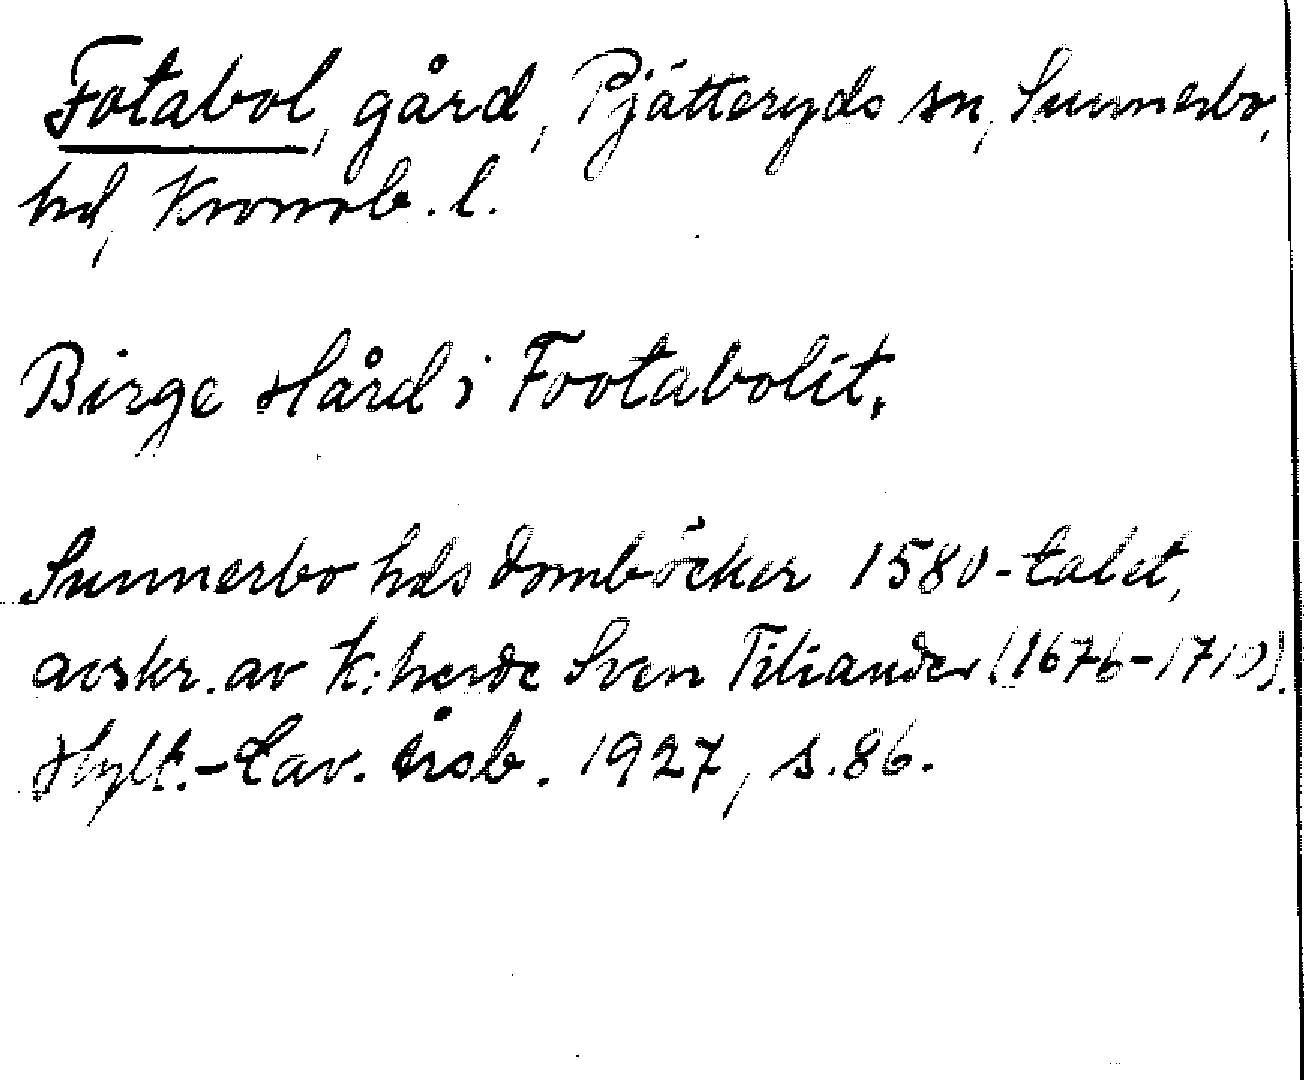 Fotabol, gård, Pjätteryds sn, Sunnerbo,
hd, Kronob. l.
Birge Hård i Footabolit.
Sunnerbo hds domböcker 1580-talet,
avskr. av k:herde Sven Tiliander (1676-1710).
Hylt.-Cav. årsb. 1927, s. 86.